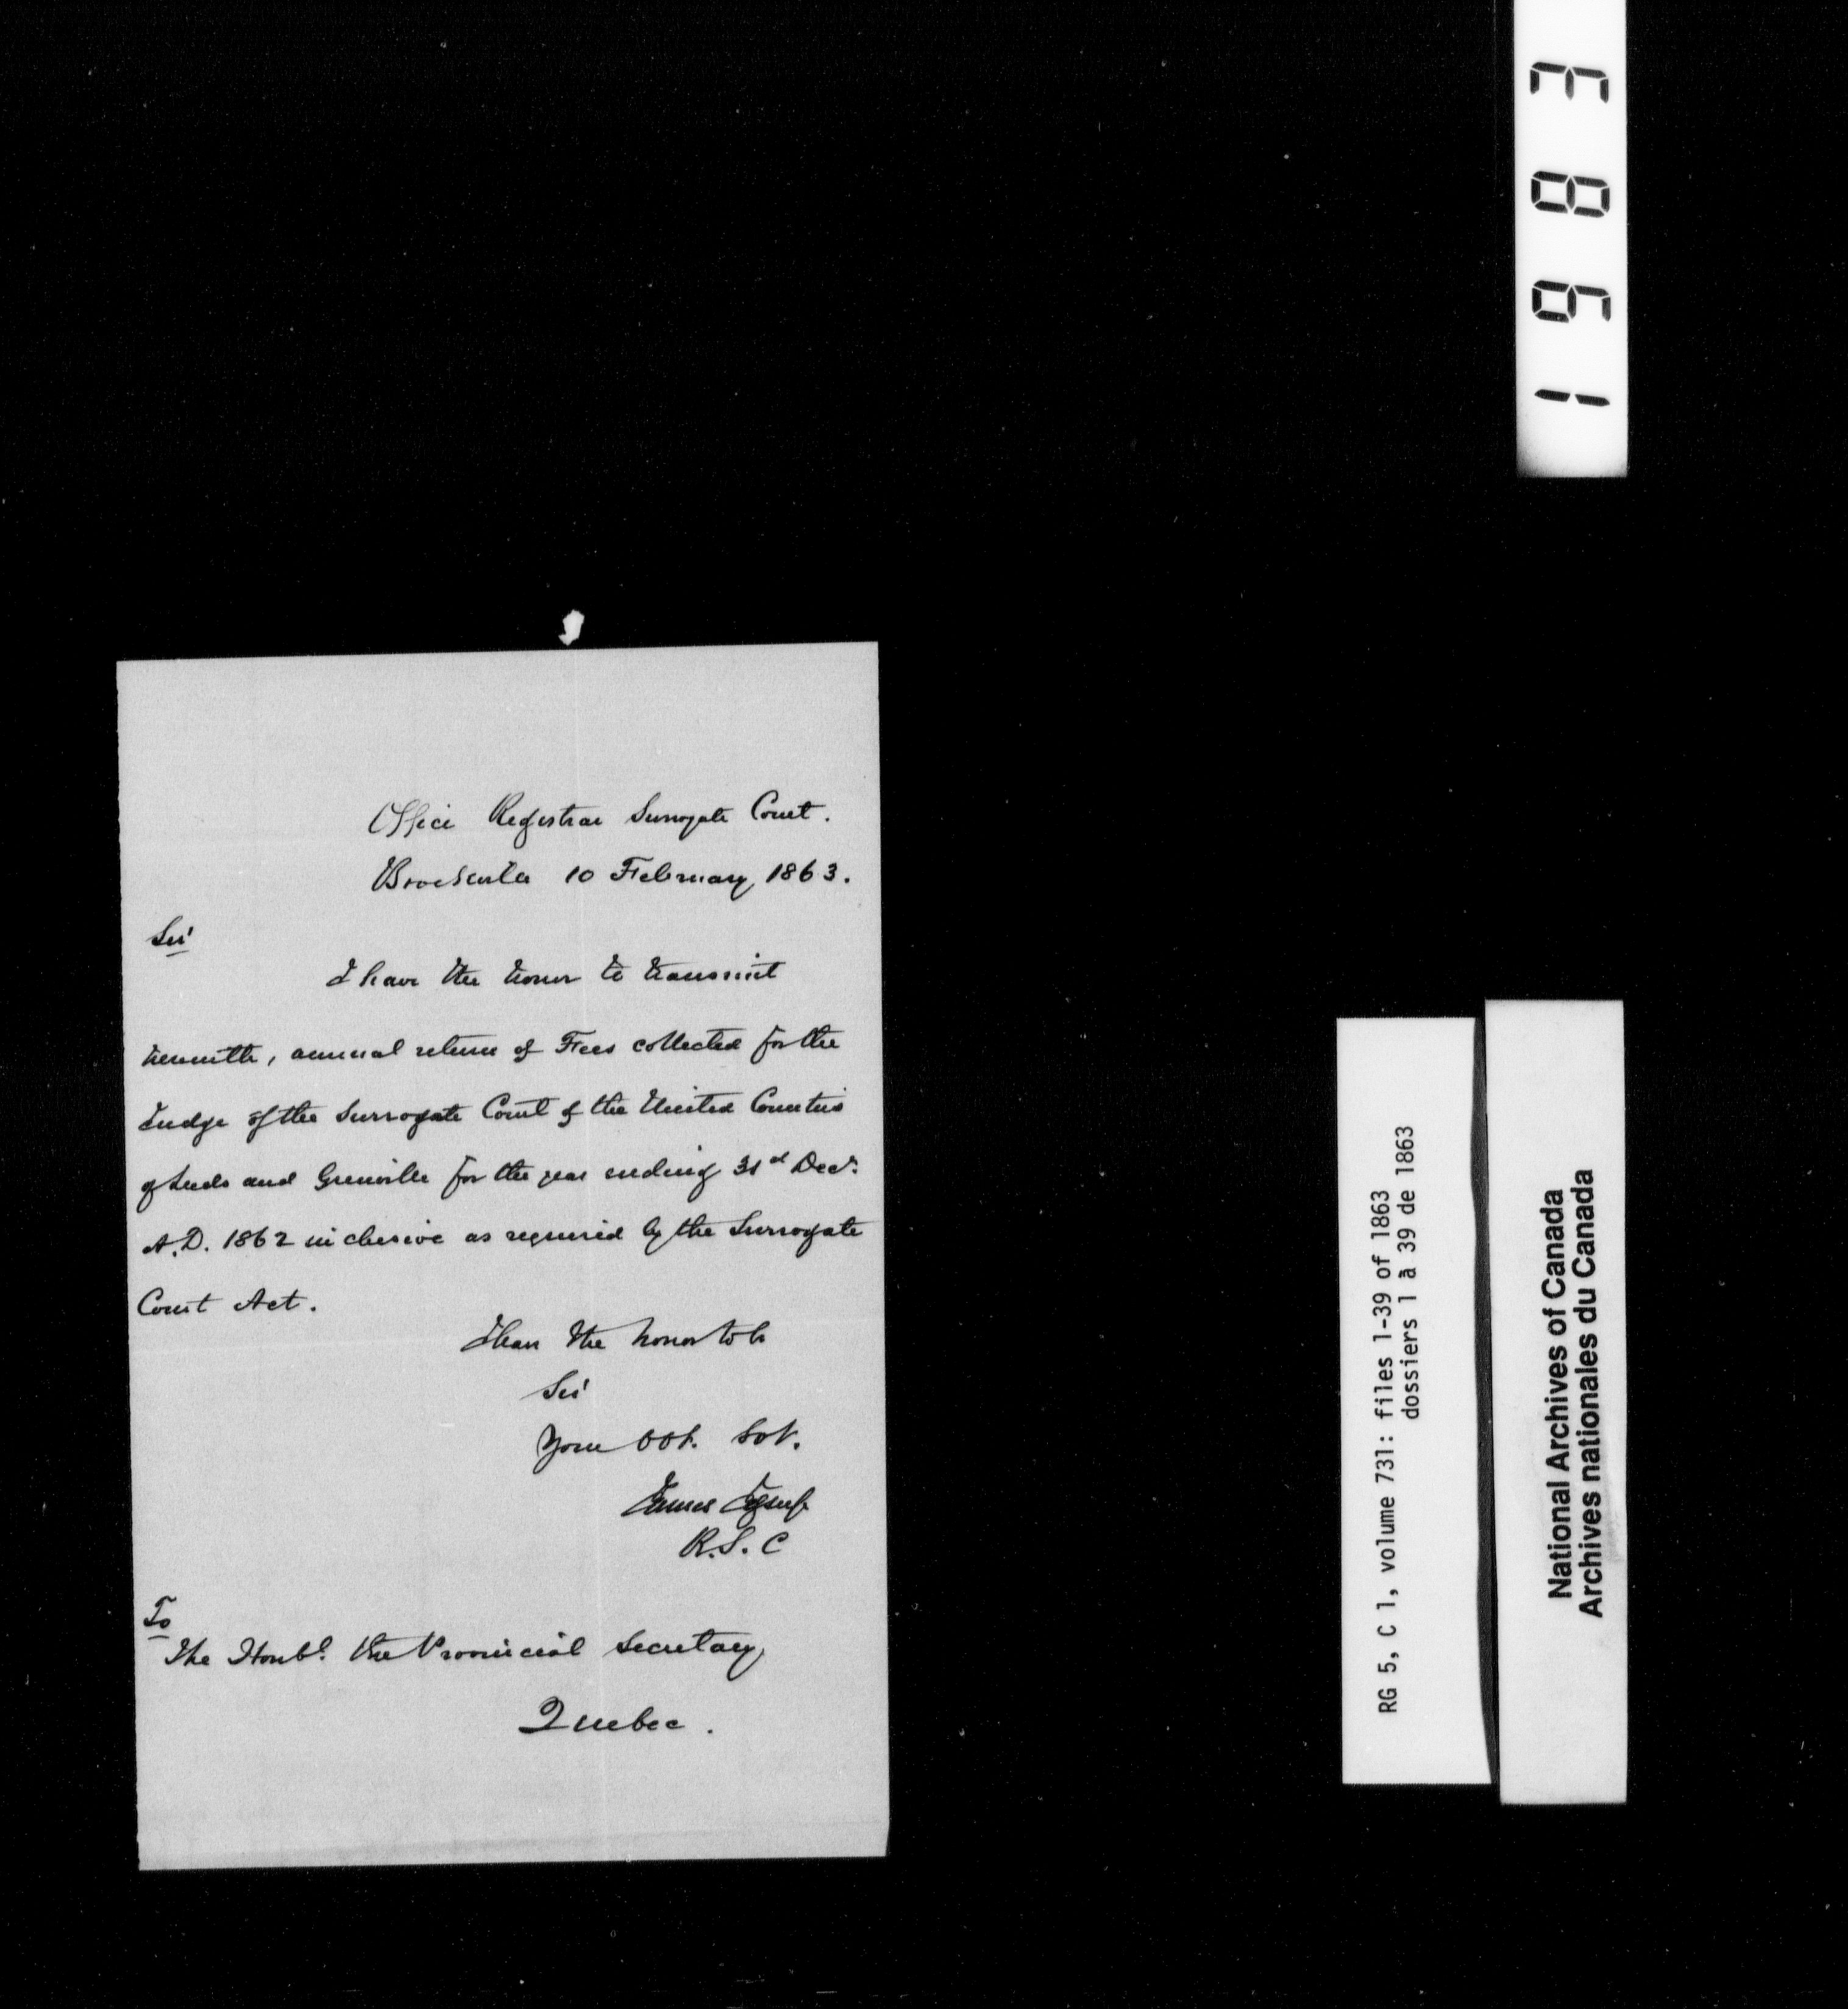 Office Registrar Surrogate Court.
Brockville 10 February, 1863.
Sir
I have the honor to transmit
herewith, annual return of Fees collected for the
Judge of the Surrogate Court of the United Counties
of Leeds and Grenville for the year ending 31st Decr.
A.D. 1862 inclusive as required by the Surrogate
Court Act.
I have the honor to be
Sir
Your Obt. Svt.
James Jessup
R.S.C
To
The Honbl. the Provincial Secretary
Quebec.
1983
RG 5, C 1, volume 731: files 1-39 of 1863
dossiers 1 à 39 de 1863
National Archives of Canada
Archives nationales du Canada